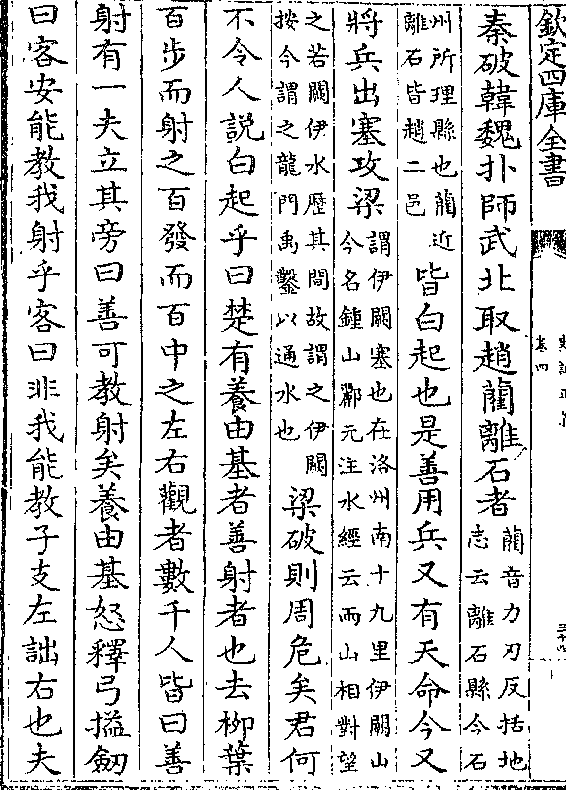 欽定四庫全書
秦破韓魏扑師武北取趙藺離石者藺音力刃反括地
志云離石縣今石
州所理縣也藺近
離石皆趙二邑皆白起也是善用兵又有天命今又
將兵出塞攻梁謂伊闕塞也在洛州南十九里伊闕山
今名鍾山酈元注水經云兩山相對望
之若闕伊水歷其間故謂之伊闕
按今謂之龍門禹鑿以通水也梁破則周危矣君何
不令人說白起乎曰楚有養由基者善射者也去柳葉
百步而射之百發而百中之左右觀者數千人皆曰善
射有一夫立其旁曰善可教射矣養由基怒釋弓搤劒
曰客安能教我射乎客曰非我能教子支左詘右也夫
卷四